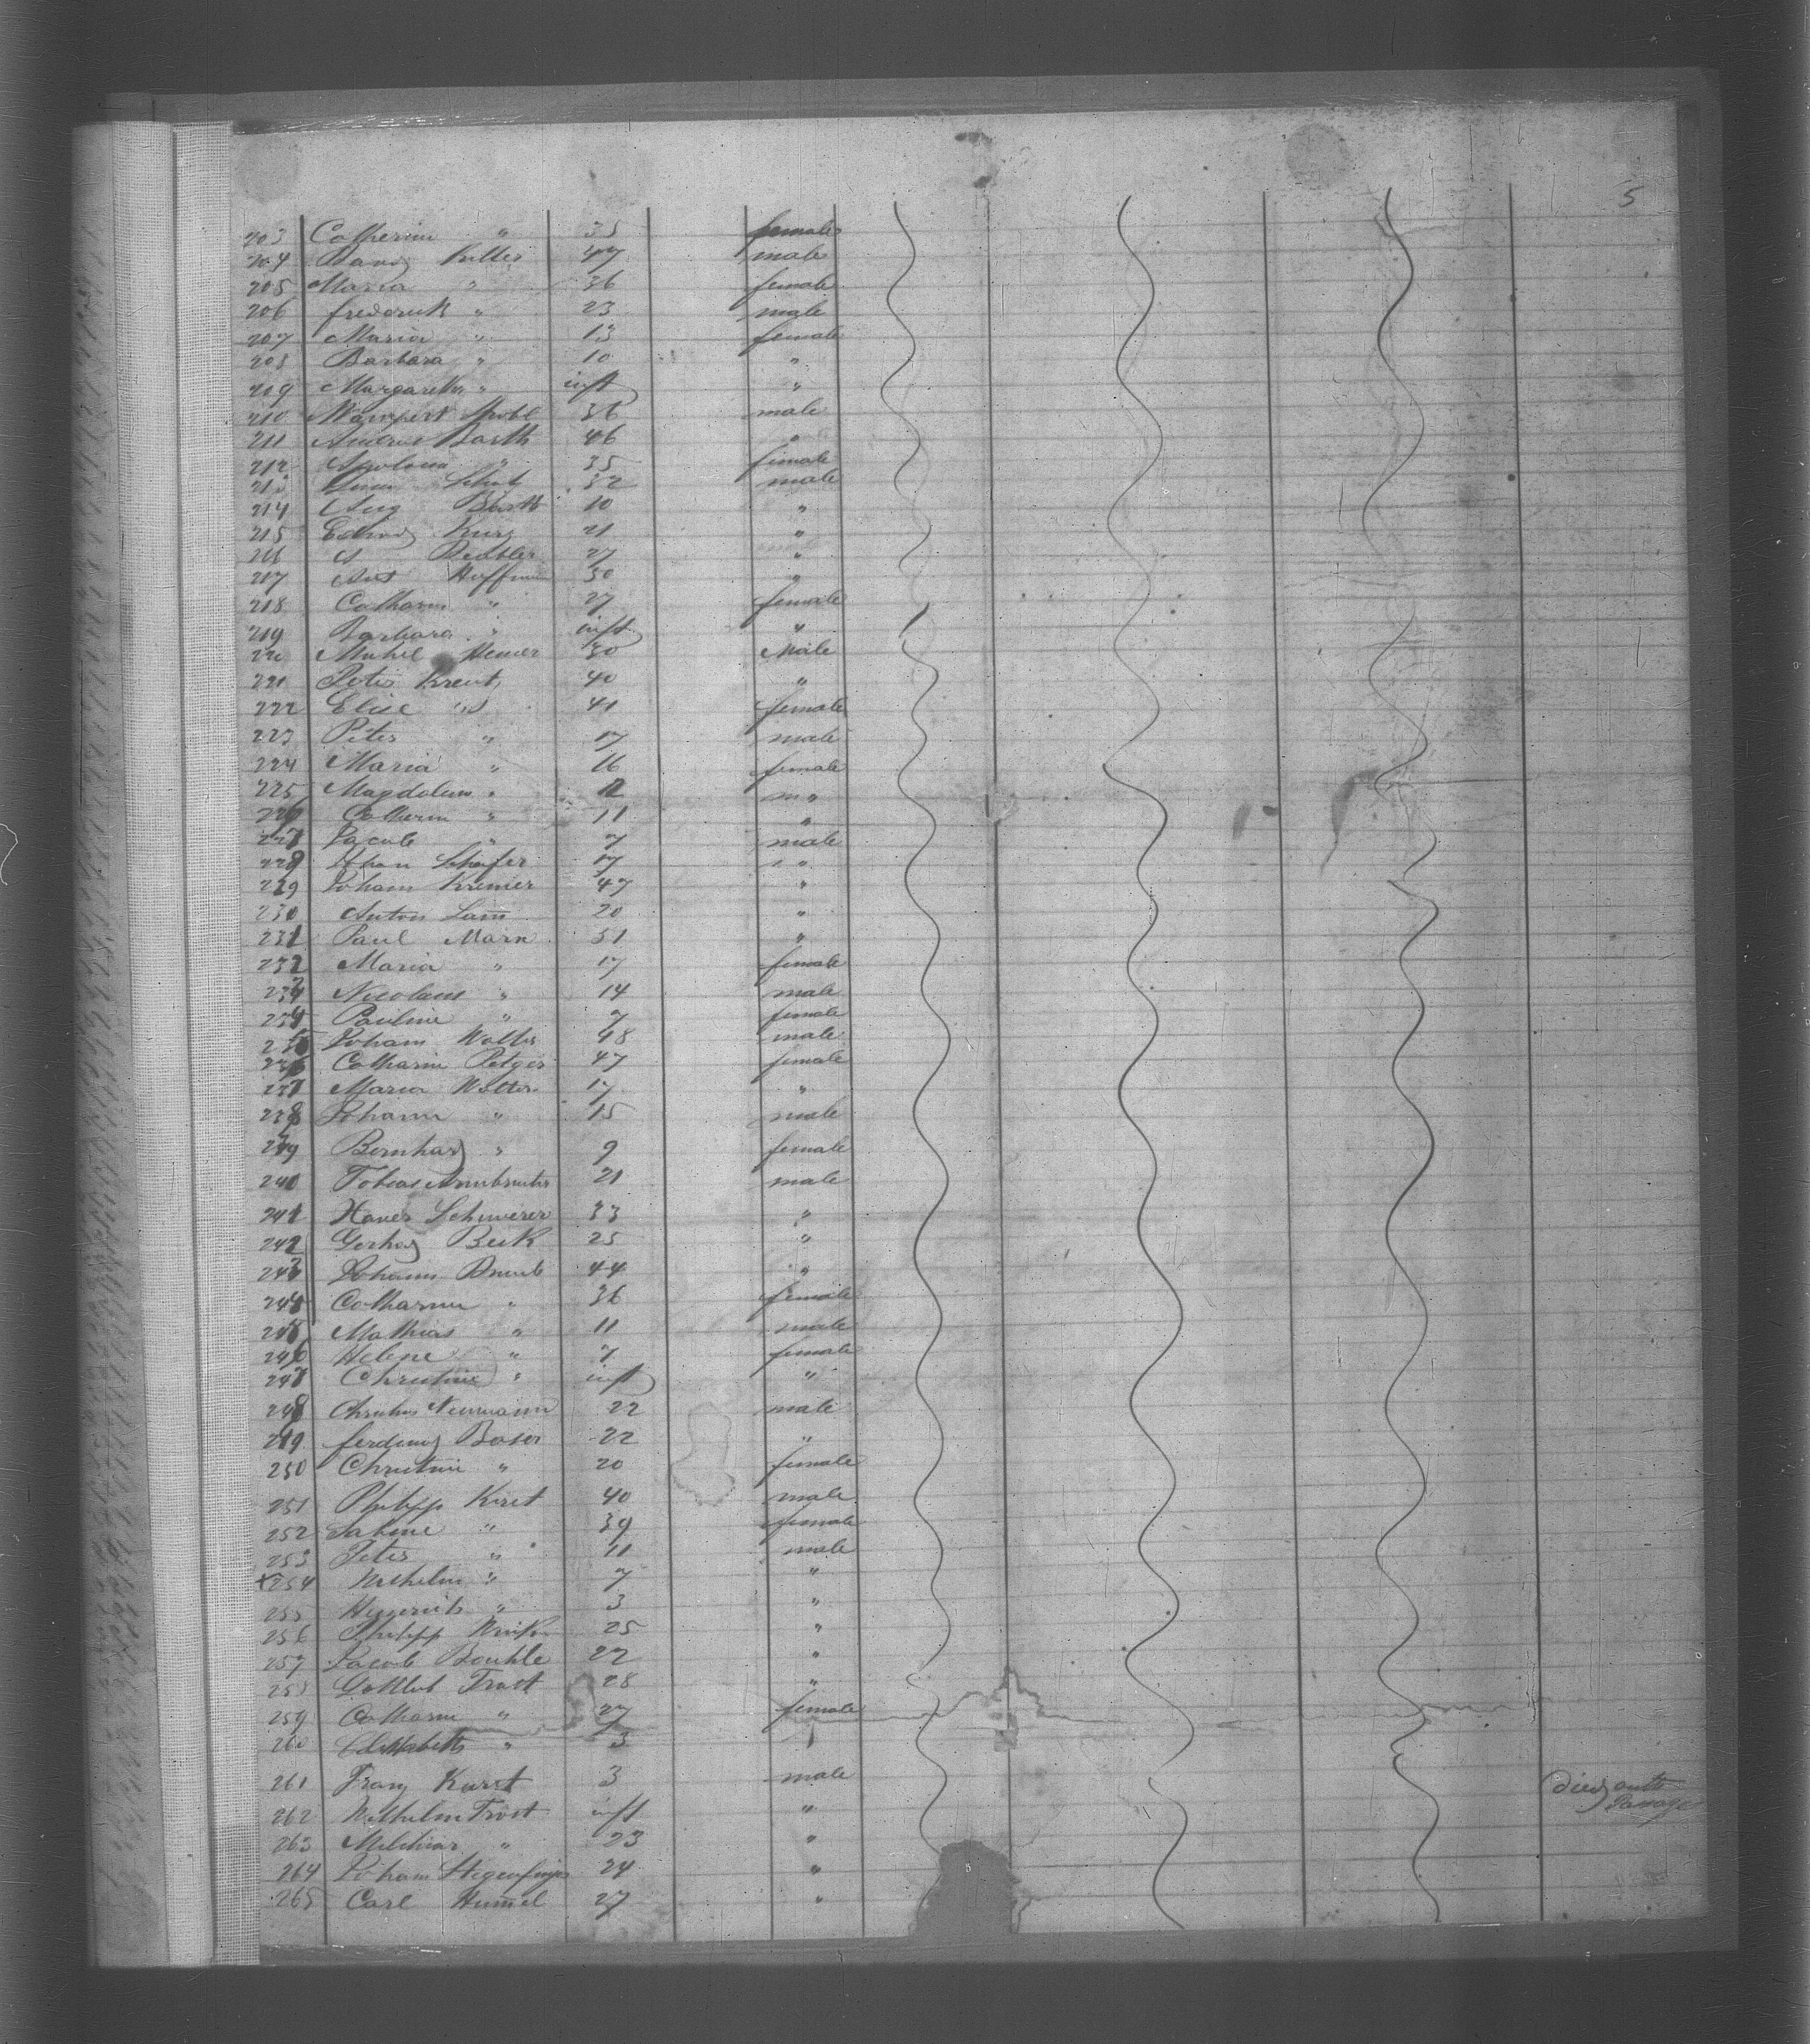 5
203 Catherine " 35 female
204 47 male
205 Maria " 36 female
206 frederick " 23 male
207 Maria " 13 female
208 Barbara " 10 "
209 Margaretha " inft "
210 36 male
211 Barth 46 "
212 " 35 female
213 32 male
214 Aug Barth 10 "
215 Kurz 21 "
216 27 "
217 30 "
218 Catharin " 27 female
219 Barbara " inft "
220 30 Male
221 Peter Kreutz 40 "
222 Elise " 41 female
223 Peter " 17 male
224 Maria " 16 female
225 Magdalena " 12 "
226 Catherin " 11 "
227 Jacob " 7 male
228 Johan Schafer 17 "
229 Johann Kremer 47 "
230 Anton Lam̄ 20 "
231 Paul Marx 51 "
232 Maria " 17 female
233 Nicolaus " 14 male
234 Pauline " 7 female
235 Johann Wolter 48 male
236 Catharin Petges 47 female
237 Maria Wolter 17 "
238 Johann " 15 male
239 Bernhard " 9 female
240 Tobias Armbruster 21 male
241 Xaver Schwerer 33 "
242 Gerhard Beck 25 "
243 Johann 44 "
244 Catharina " 36 female
245 Mathias " 11 male
246 Helene " 7 female
247 Christine " inft "
248 Neumann 22 male
249 ferdinand Baser 22 "
250 Christine " 20 female
251 Philipp 40 male
252 Sabine " 39 female
253 Peter " 11 male
x254 Wilhelm " 7 "
255 " 3 "
256 Philipp 25 "
257 Jacob 22 "
258 Gottlieb Trost 28 "
259 Catharin " 27 female
260 Elisabeth " 3 "
261 Franz 3 male died on the Passage
262 Wilhelm Trost inft "
263 Melchior " 23 "
264 Johann 24 "
265 Carl Hum̄el 27 "